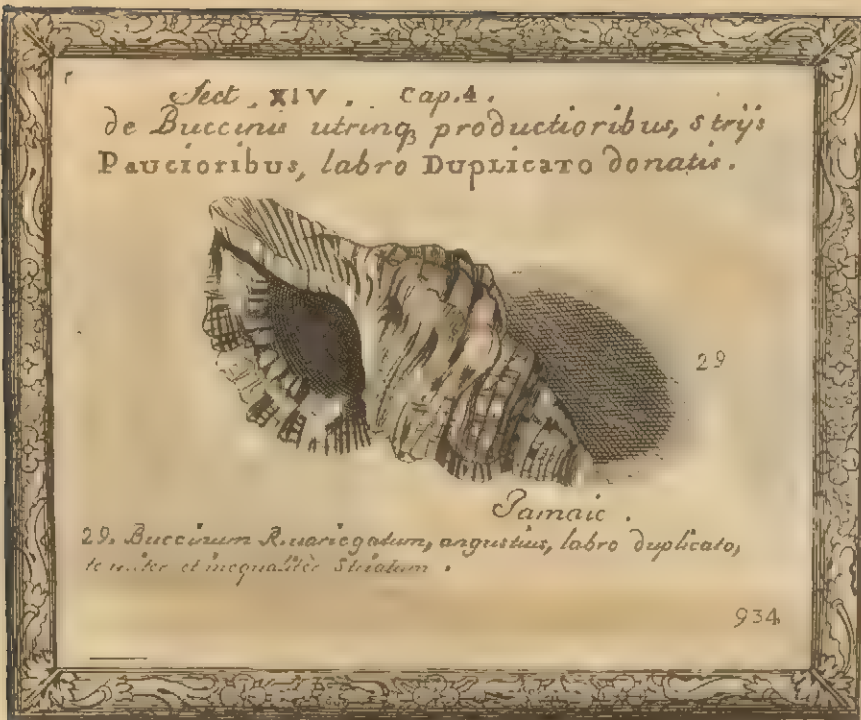 Sect. XIV. Cap. 4.
de Buccinis utrinq; productioribus, strijs
Paucioribus, labro Duplicato donatis.
29
Jamaic.
29. Buccinum R. variegatum, angustius, labro duplicato,
et inequalitèr Striatum.
934